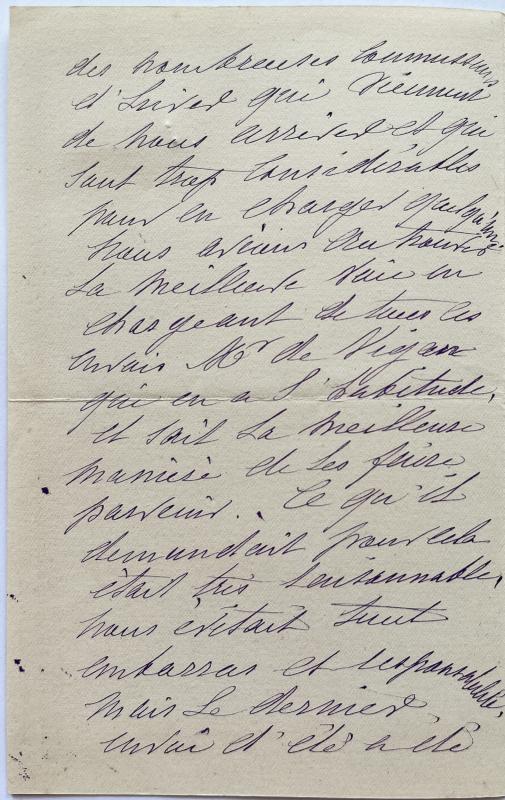 des nombreuses commissions
d'hiver qui viennent
de nous arriver et qui
sont trop considérables
pour en charger quelqu'un
nous avions cru trouver
la meilleure voie en
chargeant de tous ces
envois Mr de Vigan
qui en a l'habitude,
et sait la meilleure
manière de les faire
parvenir. Ce qu'il
demandait pour cela
était très raisonnable,
nous évitait tout
embarras et responsabilité,
mais le dernier
envoi d'été a été